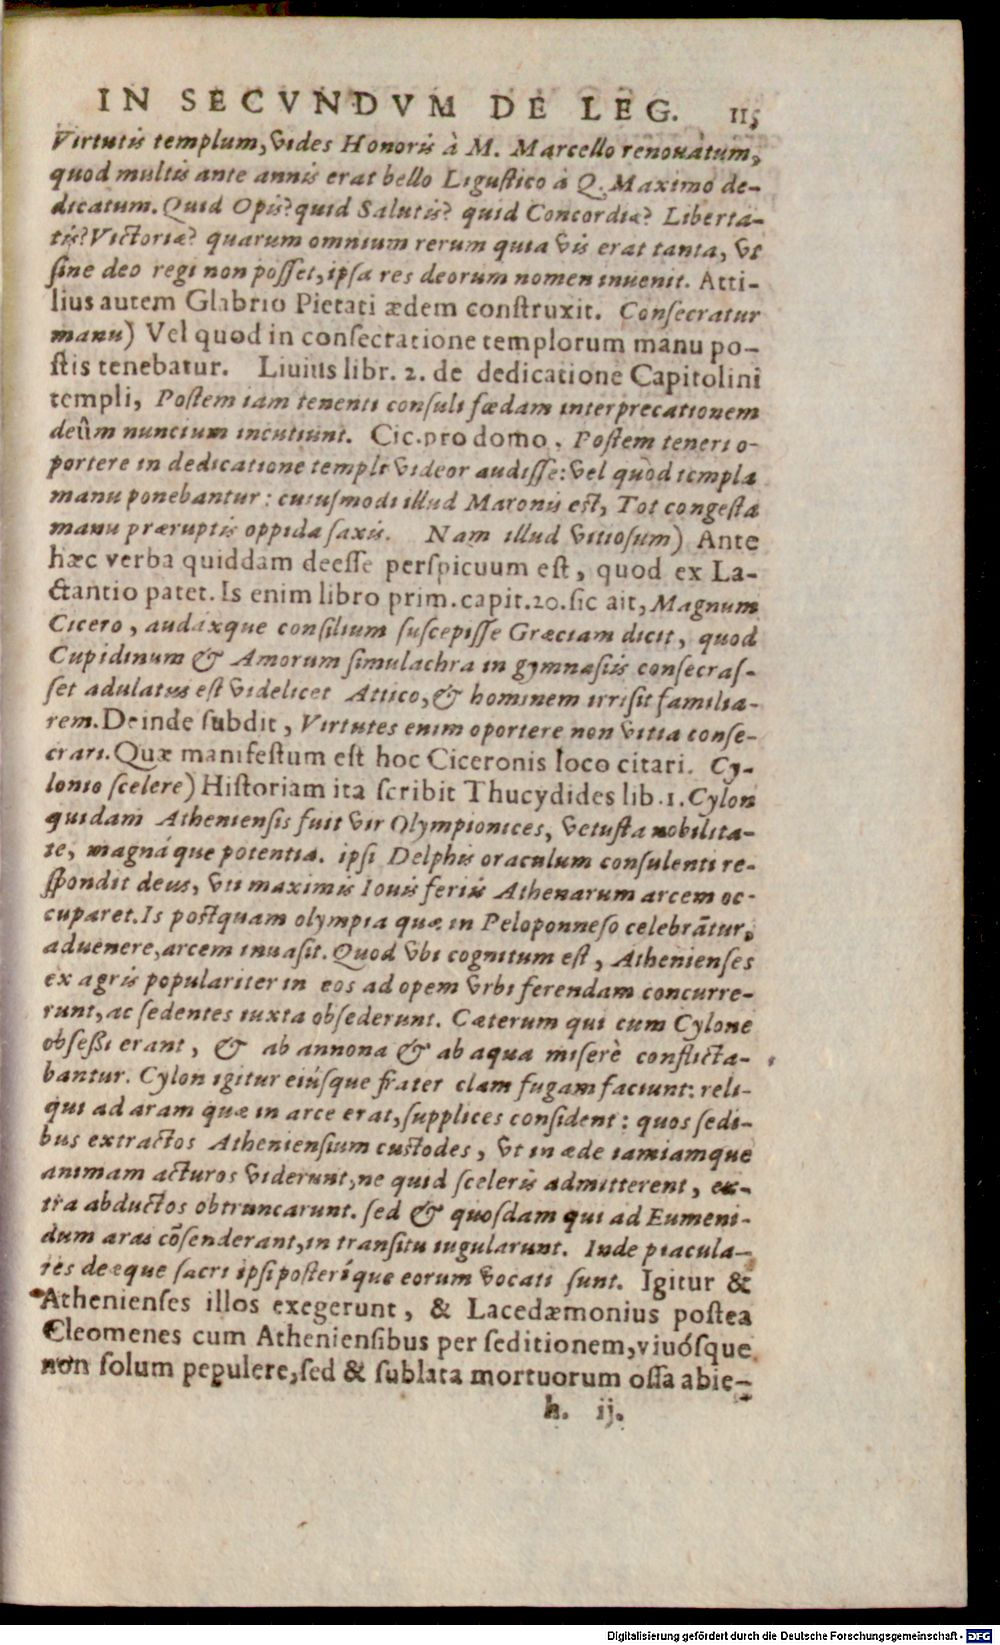 IN SECVNDVM DE LEG. 115
Virtutis templum, vides Honoris à M. Marcello renouatum,
quod multis ante annis erat bello Ligustico à Q. Maximo de-
dicatum. Quid Opis? quid Salutis? quid Concordiæ? Liberta-
tis? Victoriæ? quarum omnium rerum quia vis erat tanta, vt
sine deo regi non posset, ipsa res deorum nomen inuenit. Atti-
lius autem Glabrio Pietati ædem construxit. Consecratur
manu) Vel quod in consecratione templorum manu po-
stis tenebatur. Liuius libr. 2. de dedicatione Capitolini
templi, Postem iam tenenti consuli fædam interprecationem
deûm nuncium incutiunt. Cic. pro domo. Postem teneri o-
portere in dedicatione templi videor audisse: vel quòd templa
manu ponebantur: cuiusmodi illud Maronis est, Tot congesta
manu præruptis oppida saxis. Nam illud vitiosum) Ante
hæc verba quiddam deesse perspicuum est, quod ex La-
ctantio patet. Is enim libro prim. capit. 20. sic ait, Magnum
Cicero, audáxque consilium suscepisse Græciam dicit, quod
Cupidinum & Amorum simulachra in gymnasiis consecras-
set adulatus est videlicet Attico, & hominem irrisit familia-
rem. Deinde subdit, Virtutes enim oportere non vitia conse-
crari. Quæ manifestum est hoc Ciceronis loco citari. Cy-
lonio scelere) Historiam ita scribit Thucydides lib. 1. Cylon
quidam Atheniensis fuit vir Olympionices, vetusta nobilita-
te, magnáque potentia. ipsi Delphis oraculum consulenti re-
spondit deus, vti maximis Iouis feriis Athenarum arcem oc-
cuparet. Is postquam olympia quæ in Peloponneso celebrãtur,
aduenere, arcem inuasit. Quod vbi cognitum est, Athenienses
ex agris populariter in eos ad opem vrbi ferendam concurre-
runt, ac sedentes iuxta obsederunt. Cæterum qui cum Cylone
obsessi erant, & ab annona & ab aqua miserè conflicta-
bantur. Cylon igitur eiúsque frater clam fugam faciunt: reli-
qui ad aram quæ in arce erat, supplices consident: quos sedi-
bus extractos Atheniensium custodes, vt in æde iamiamque
animam acturos viderunt, ne quid sceleris admitterent, ex-
tra abductos obtruncarunt. sed & quosdam qui ad Eumeni-
dum aras cõsenderant, in transitu iugularunt. Inde piacula-
res deæque sacri ipsi posteríque eorum vocati sunt. Igitur &
Athenienses illos exegerunt, & Lacedæmonius postea
Cleomenes cum Atheniensibus per seditionem, viuósque
non solum pepulere, sed & sublata mortuorum ossa abie-
h. ij.
Digitalisierung gefördert durch die Deutsche Forschungsgemeinschaft - DFG